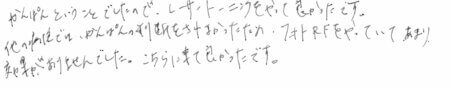 かんぱんということでしたので、レーザートーニングをやって良かったです。
他の病院では、かんぱんの判断をされなかったため、フォトRFをやっていてあまり
効果がありませんでした。こちらに来て良かったです。